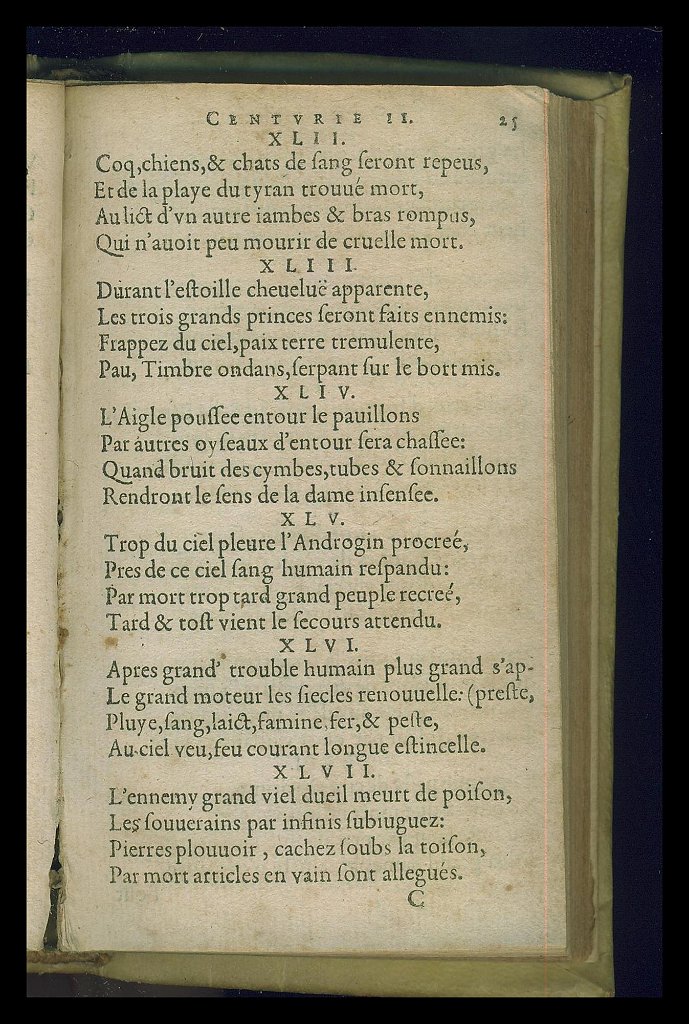 CENTVRIE II. 25
XLII.
Coq,chiens,& chats de ſang ſeront repeus,
Et de la playe du tyran trouué mort,
Au lict d'vn autre iambes & bras rompus,
Qui n'auoit peu mourir de cruelle mort.
XLIII.
Durant l'eſtoille cheueluë apparente,
Les trois grands princes ſeront faits ennemis:
Frappez du ciel,paix terre tremulente,
Pau, Timbre ondans,ſerpant ſur le bort mis.
XLIV.
L'Aigle pouſſee entour le pauillons
Par autres oyſeaux d'entour ſera chaſſee:
Quand bruit des cymbes,tubes & ſonnaillons
Rendront le ſens de la dame inſenſee.
XLV.
Trop du ciel pleure l'Androgin procreé,
Pres de ce ciel ſang humain reſpandu:
Par mort trop tard grand peuple recreé,
Tard & toſt vient le ſecours attendu.
XLVI.
Apres grand' trouble humain plus grand s'ap-
Le grand moteur les ſiecles renouuelle: (preſte,
Pluye,ſang,laict,famine,fer,& peſte,
Au ciel veu,feu courant longue eſtincelle.
XLVII.
L'ennemy grand viel dueil meurt de poiſon,
Les ſouuerains par infinis ſubiuguez:
Pierres plouuoir, cachez ſoubs la toiſon,
Par mort articles en vain ſont allegués.
C